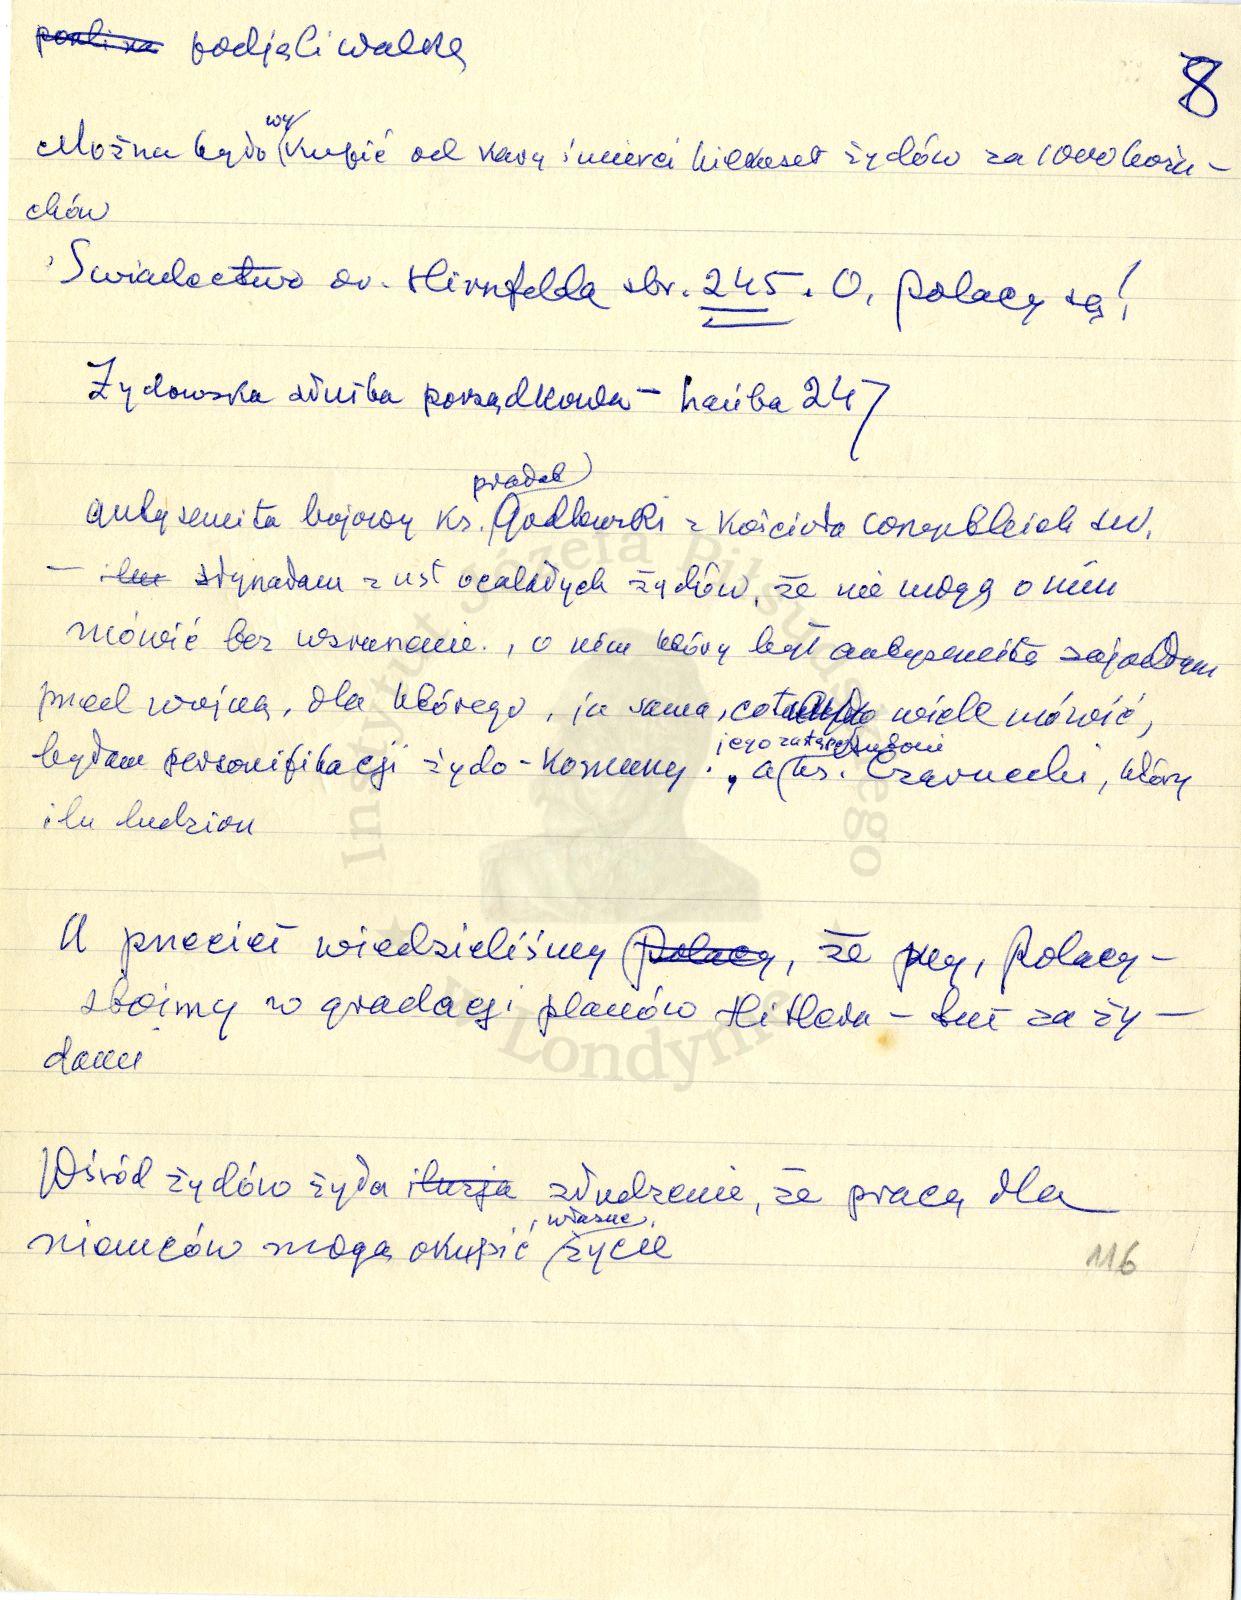 podjęli walkę
8
Można było wykupić od kary śmierci kilkuset żydów za 1000 kożu-
chów
Swiadectwo dr. Hirszfelda str. 245. O, Polacy są!
Żydowska służba porządkowa – hańba 247
antysemita bojowy ks. prałat Godlewski z Kościoła Wszystkich Św.
— słyszałam z ust ocalałych żydów, że nie mogą o nim
mówić bez wzruszenia., o nim który był antysemitą zajadłym
przed wojną, dla którego, ja sama, co tu dużo wiele mówić,
byłam personifikacją żydo-komuny., a jego zastępca ks. Czarnecki, który
ilu ludziom
A przecież wiedzieliśmy Polacy, że my, Polacy –
stoimy w gradacji planów Hitlera – tuż za ży –
dami
Wśród żydów żyła iluzja złudzenie, że pracą dla
niemców mogą okupić własne życie
116
Instytut Józefa Piłsudskiego
w Londynie